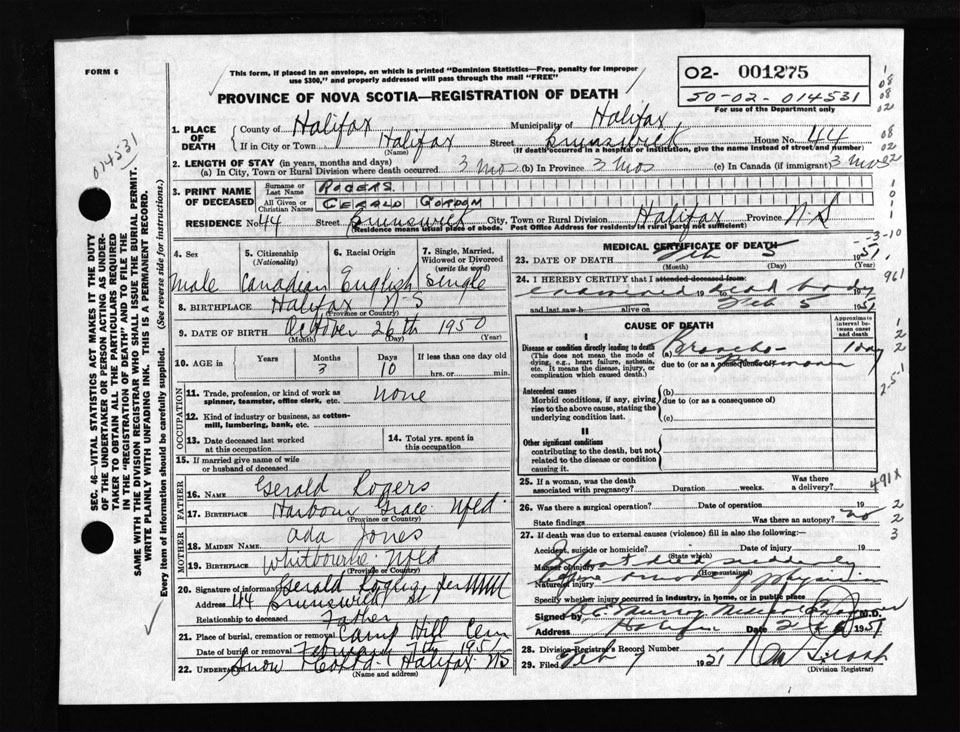 FORM 6
This form, if placed in an envelope, on which is printed "Dominion Statistics—Free, penalty for improper
use $300," and properly addressed will pass through the mail "FREE"
PROVINCE OF NOVA SCOTIA—REGISTRATION OF DEATH
02- 001275
50-02-014531
For use of the Department only
014531
SEC. 46—VITAL STATISTICS ACT MAKES IT THE DUTY
OF THE UNDERTAKER OR PERSON ACTING AS UNDER-
TAKER TO OBTAIN ALL THE PARTICULARS REQUIRED
IN THE "REGISTRATION OF DEATH" AND TO FILE THE
SAME WITH THE DIVISION REGISTRAR WHO SHALL ISSUE THE BURIAL PERMIT.
WRITE PLAINLY WITH UNFADING INK. THIS IS A PERMANENT RECORD.
Every item of information should be carefully supplied. (See reverse side for instructions.)
1. PLACE OF DEATH
County of Halifax Municipality of Halifax
If in City or Town Halifax Street Brunswick House No. 44
(Name) (If death occurred in a hospital or institution, give the name instead of street and number)
2. LENGTH OF STAY (in years, months and days)
(a) In City, Town or Rural Division where death occurred 3 Mos (b) In Province 3 Mos (c) In Canada (if immigrant) 3 Mos
3. PRINT NAME OF DECEASED
Surname or Last Name ROGERS
All Given or Christian Names GERALD GORDON
RESIDENCE No. 44 Street Brunswick City, Town or Rural Division Halifax Province N.S
(Residence means usual place of abode. Post Office Address for residents in rural parts not sufficient)
4. Sex
5. Citizenship (Nationality)
6. Racial Origin
7. Single, Married, Widowed or Divorced (write the word)
Male Canadian English Single
8. BIRTHPLACE Halifax N-S
(Province or Country)
9. DATE OF BIRTH October 26th 1950
(Month) (Day) (Year)
10. AGE in Years Months 3 Days 10 If less than one day old
hrs. or min.
OCCUPATION
11. Trade, profession, or kind of work as spinner, teamster, office clerk, etc. None
12. Kind of industry or business, as cotton-mill, lumbering, bank, etc.
13. Date deceased last worked at this occupation
14. Total yrs. spent in this occupation
15. If married give name of wife or husband of deceased
FATHER
16. NAME Gerald Rogers
17. BIRTHPLACE Harbour Grace Nfld
(Province or Country)
MOTHER
18. MAIDEN NAME Ada Jones
19. BIRTHPLACE Whitbourne Nfld
(Province or Country)
20. Signature of informant Gerald Rogers
Address 44 Brunswick St
Relationship to deceased Father
21. Place of burial, cremation or removal Camp Hill Cem
Date of burial or removal February 7th 1951
22. UNDERTAKER Snow Halifax NS
(Name and address)
MEDICAL CERTIFICATE OF DEATH
23. DATE OF DEATH Feb 5 1951
(Month) (Day) (Year)
24. I HEREBY CERTIFY that I attended deceased from:
examined 19 to dead body 19
and last saw h alive on Feb 5 1951
CAUSE OF DEATH
Approximate interval between onset and death
I
Disease or condition directly leading to death
(This does not mean the mode of dying, e.g., heart failure, asthenia, etc. It means the disease, injury, or complication which caused death.
(a) Broncho- 1 day
due to (or as a consequence of) Pneumonia
Antecedent causes
Morbid conditions, if any, giving rise to the above cause, stating the underlying condition last.
(b)
due to (or as a consequence of)
(c)
II
Other significant conditions
contributing to the death, but not related to the disease or condition causing it.
25. If a woman, was the death associated with pregnancy? Duration weeks. Was there a delivery?
26. Was there a surgical operation? Date of operation 19
State findings Was there an autopsy? no
27. If death was due to external causes (violence) fill in also the following:
Accident, suicide or homicide? Date of injury 19
(State which)
Manner of injury died suddenly
(How sustained)
Nature of injury physician
Specify whether injury occurred in industry, in home, or in public place
Signed by Murray Medical Examiner M.D.
Address Halifax Date 1951
28. Division Registrar's Record Number
29. Filed Feb 7 1951
(Division Registrar)
1
08
08
02
08
02
1
0
1
1
-3-10
961
1
2
2
2-5-1
491X
2
2
3